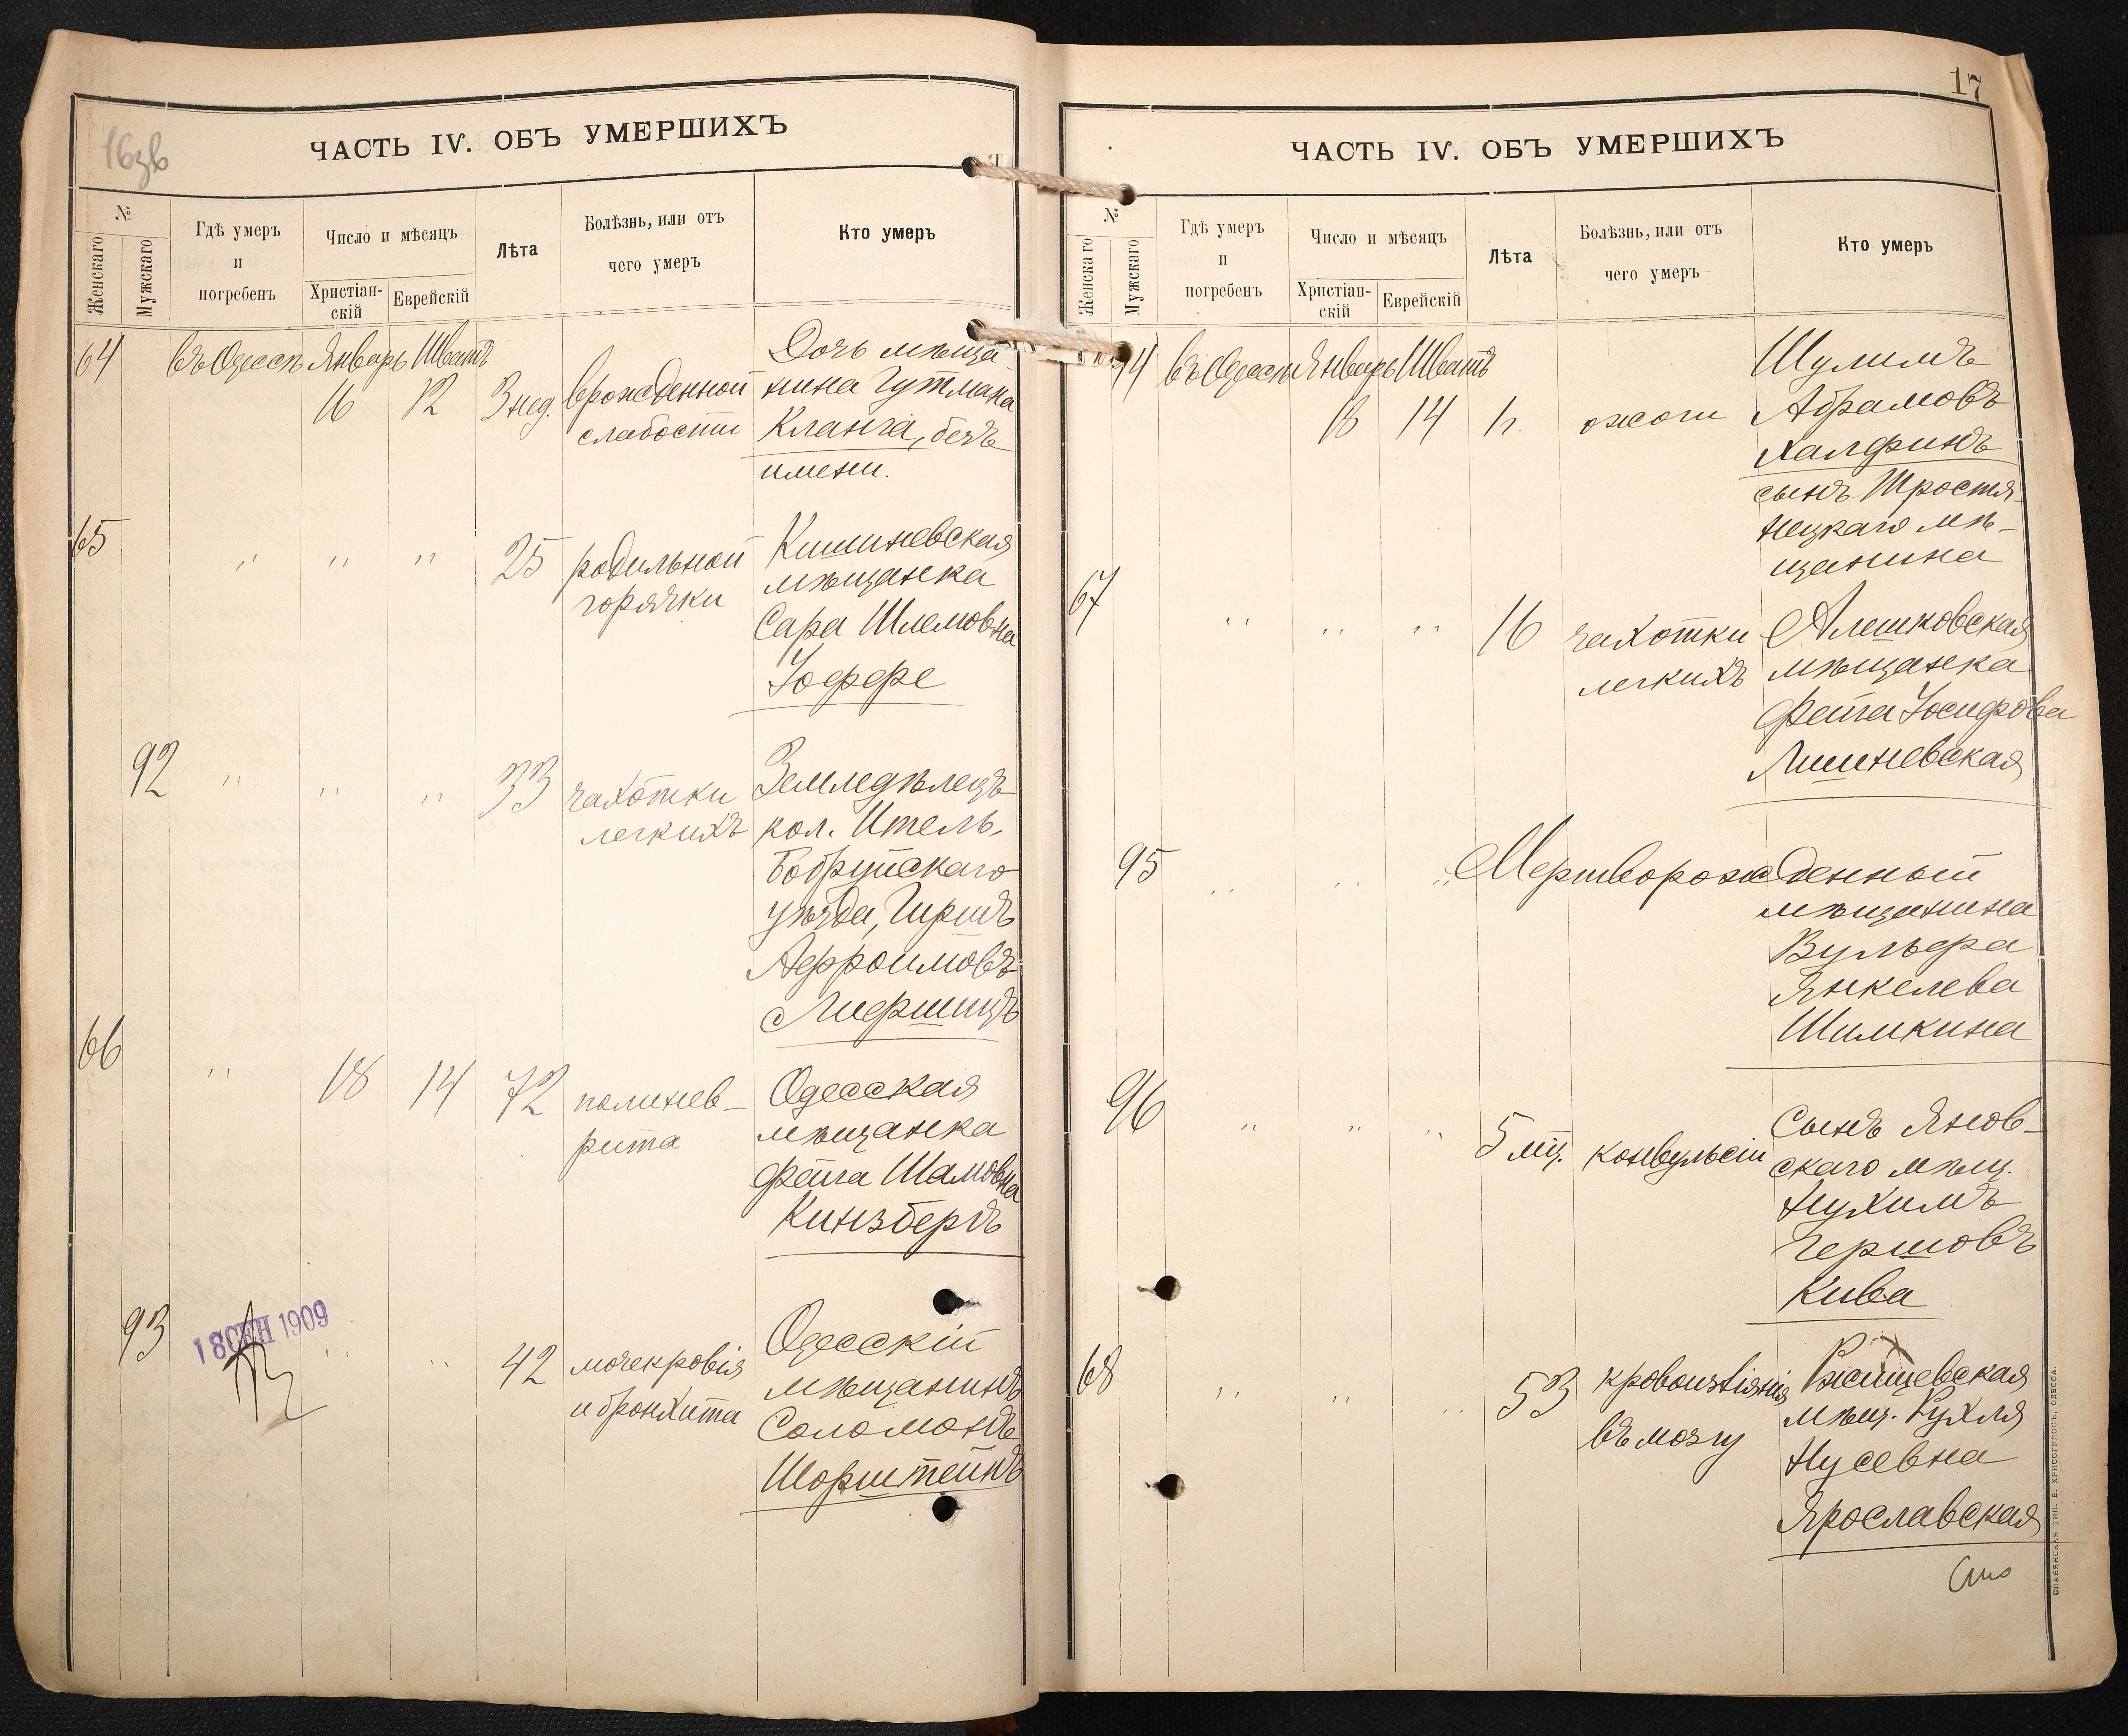 16зв
ЧАСТЬ IV. ОБЪ УМЕРШИХЪ
№
Женскаго
Мужскаго
Гдѣ умеръ
и
погребенъ
Число и мѣсяцъ
Христіан-
скій
Еврейскій
Лѣта
Болѣзнь, или отъ
чего умеръ
Кто умеръ
64 въ Одессѣ Январь Шватъ
16 12 3 нед. врожденной
слабости
Дочь мѣща
нина Гутмана
Кланга, безъ
имени.
65 " " " 25 родильной
горячки
Кишиневская
мѣщанка
Сара Шлемовна
Іоффе
92 " " " 33 чахотки
легкихъ
Земледѣлецъ
кол. Итель,
Бобруйскаго
уѣзда, Гиршъ
Аефроимовъ
Лифшицъ
66 " 18 14 72 полинев-
рита
Одесская
мѣщанка
Фейга Шамовна
Кинзберъ
93 " " 42 мочекровія
и бронхита
18 СЕН 1909
Одесскій
мѣщанинъ
Соломонъ
Шорштейнъ
17
ЧАСТЬ IV. ОБЪ УМЕРШИХЪ
№
Женскаго
Мужскаго
Гдѣ умеръ
и
погребенъ
Число и мѣсяцъ
Христіан-
скій
Еврейскій
Лѣта
Болѣзнь, или отъ
чего умеръ
Кто умеръ
94 въ Одессѣ Январь Шватъ
18 14 ожоги
Шулимъ
Абрамовъ
Халфинъ
сынъ Тростя-
нецкаго мѣ-
щанина
67 " " " 16 чахотки
легкихъ
Алешковская
мѣщанка
Фейга Іосифова
Лишневская
95 " " " Мертворожденный
мѣщанина
Вульфа
Янкелева
Шимкина
96 " " " 5 мц. конвульсіи
Сынъ Янов-
скаго мѣщ.
Нухимъ
Гершовъ
Кива
68 " " " 53 кровоизліянія
въ мозгу
Ржищевская
мѣщ. Рухля
Нусевна
Ярославская
СЛАВЯНСКАЯ ТИП. Е. ХРИСОГЕЛОСЪ, ОДЕССА.